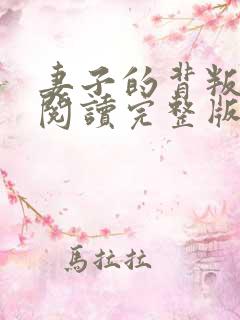 妻子的背叛
閱讀完整版
馬拉拉